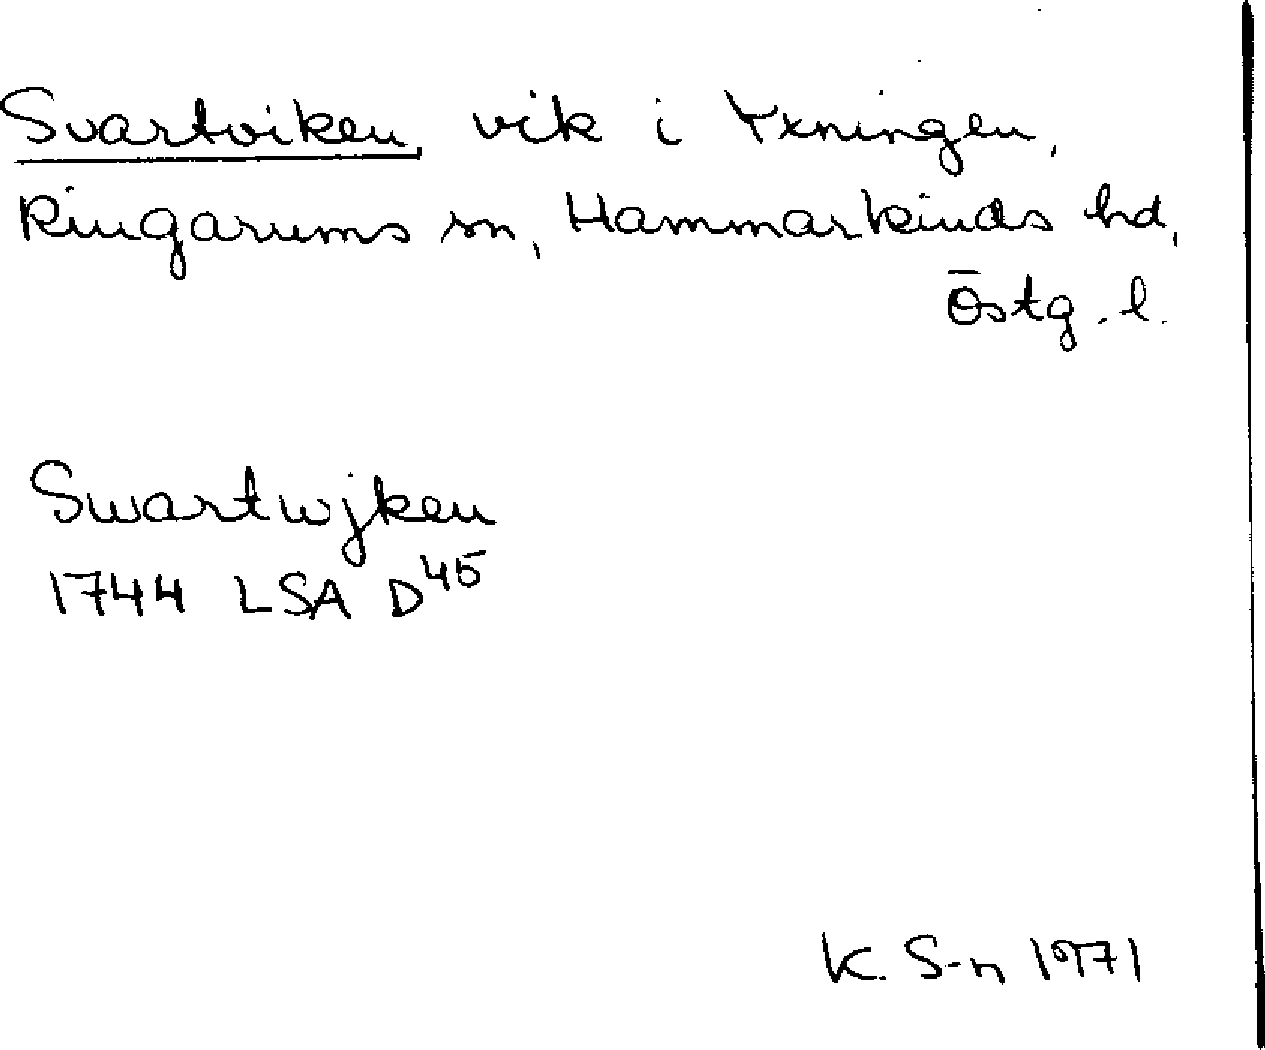 Svartviken, vik i Yxningen,
Ringarums sn, Hammarkinds hd,
Östg. l.
Swartwjken
1744 LSA D45
K. S-n 1971